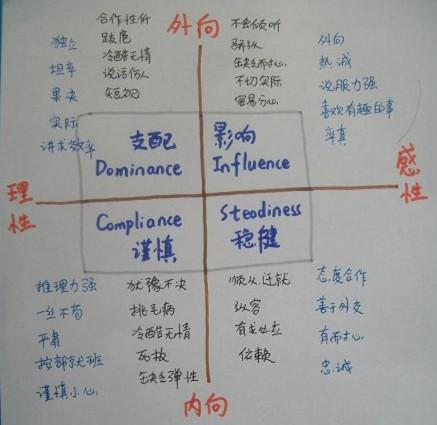 外向
合作性
跋扈
冷酷无情
说话伤人
短视
不会倾听
骄纵
缺乏耐心
不切实际
容易分心
独立
坦率
果决
实际
讲求效率
外向
热诚
说服力强
喜欢有趣的事
率真
支配
Dominance
影响
Influence
理性
感性
Compliance
谨慎
Steadiness
稳健
推理力强
一丝不苟
严肃
按部就班
谨慎小心.
犹豫不决
挑毛病
冷酷无情
死板
缺乏弹性
顺从.迁就
纵容
有求必应
态度合作
善于外交
有耐心.
忠诚
内向